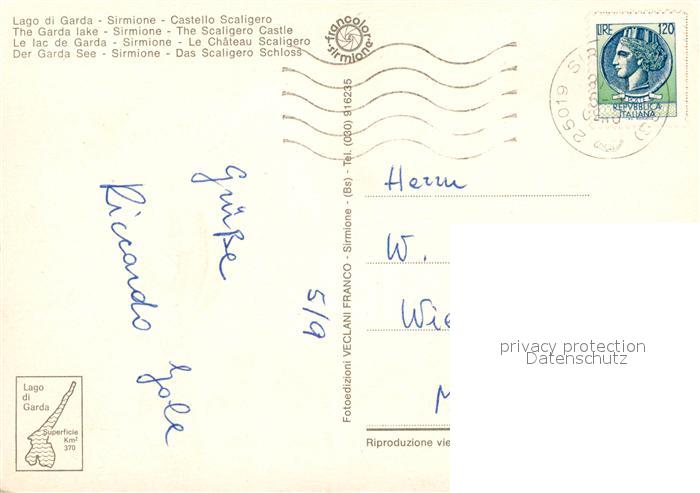 Lago di Garda - Sirmione - Castello Scaligero
The Garda lake - Sirmione - The Scaligero Castle
Le lac de Garda - Sirmione - Le Château Scaligero
Der Garda See - Sirmione - Das Scaligero Schloss
francolor
sirmione
LIRE 120
POSTE
REPVBBLICA
ITALIANA
25019
Grüße
Riccardo
5/9
Fotoedizioni VECLANI FRANCO - Sirmione - (Bs) - Tel. (030) 916235
Herrn
W.
Wie
M
Riproduzione vie
Lago
di
Garda
Superficie
Km²
370
privacy protection
Datenschutz